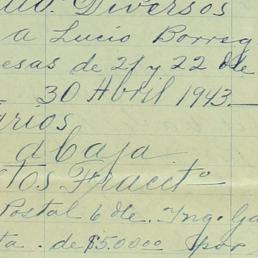 Diversos
a Lucio Borreg
esas de 21 y 22 de
30 Abril 1943.
arios
a Caja
tos Fracct°
Postal 6 de. Ing. Ga
ta. de $50.00 por